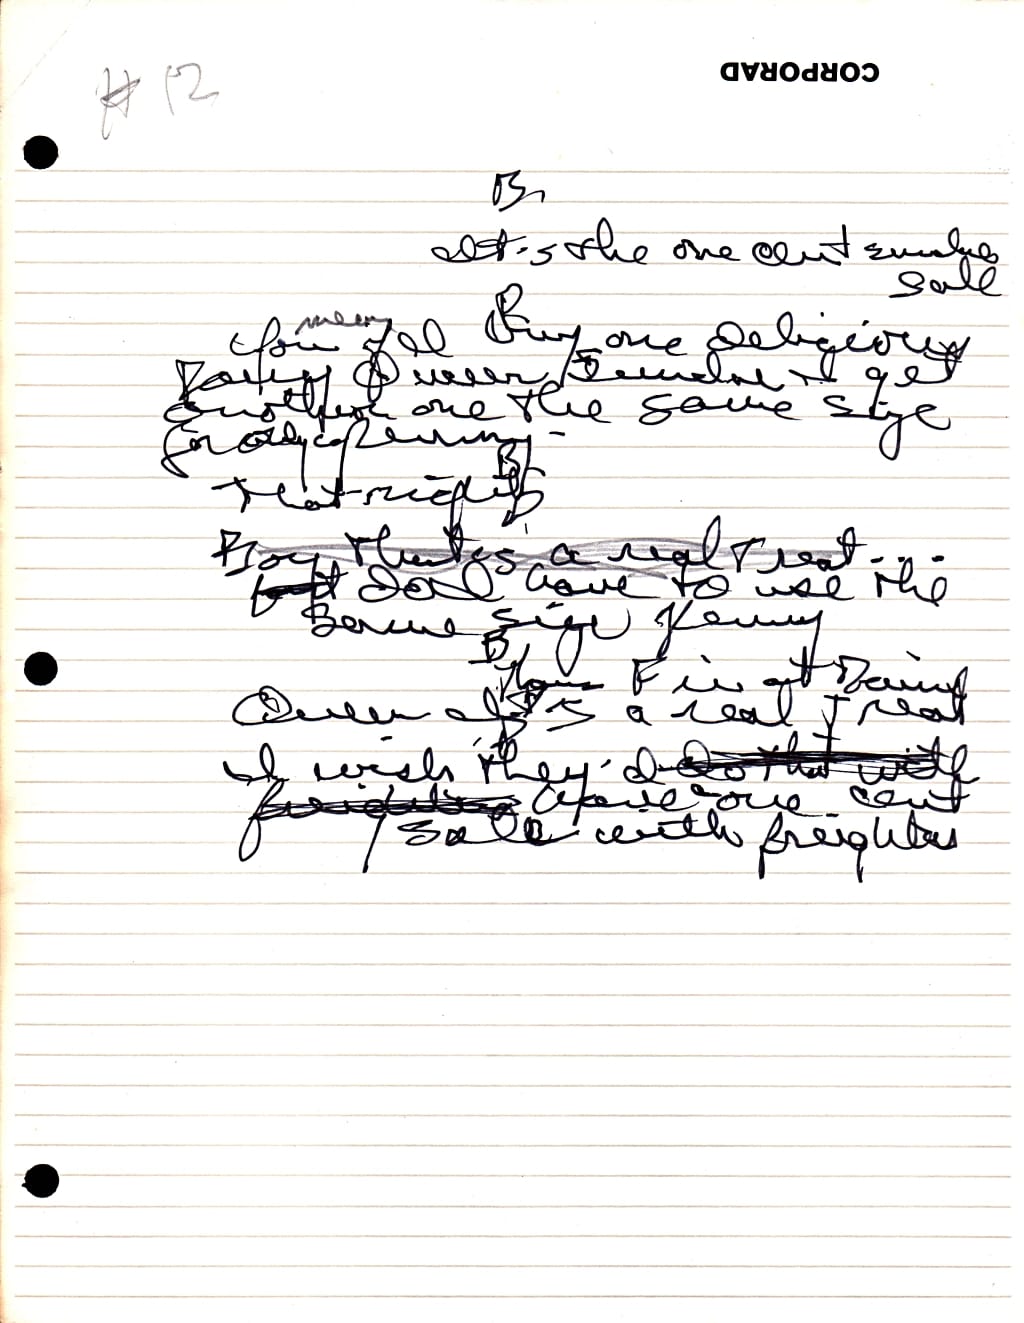 CORPORAD
# 12
B
It's the one cent sundae
sale
mean
You Buy one delicious
Dairy Queen Sundae & get
another one the same size
for only a penny -
B
That's right
Boy that's a real treat...
but dont have to use the
same size Kenny
B
Dairy
Queen is a real Treat
I wish they'd do that with
have one cent
sale with freighters